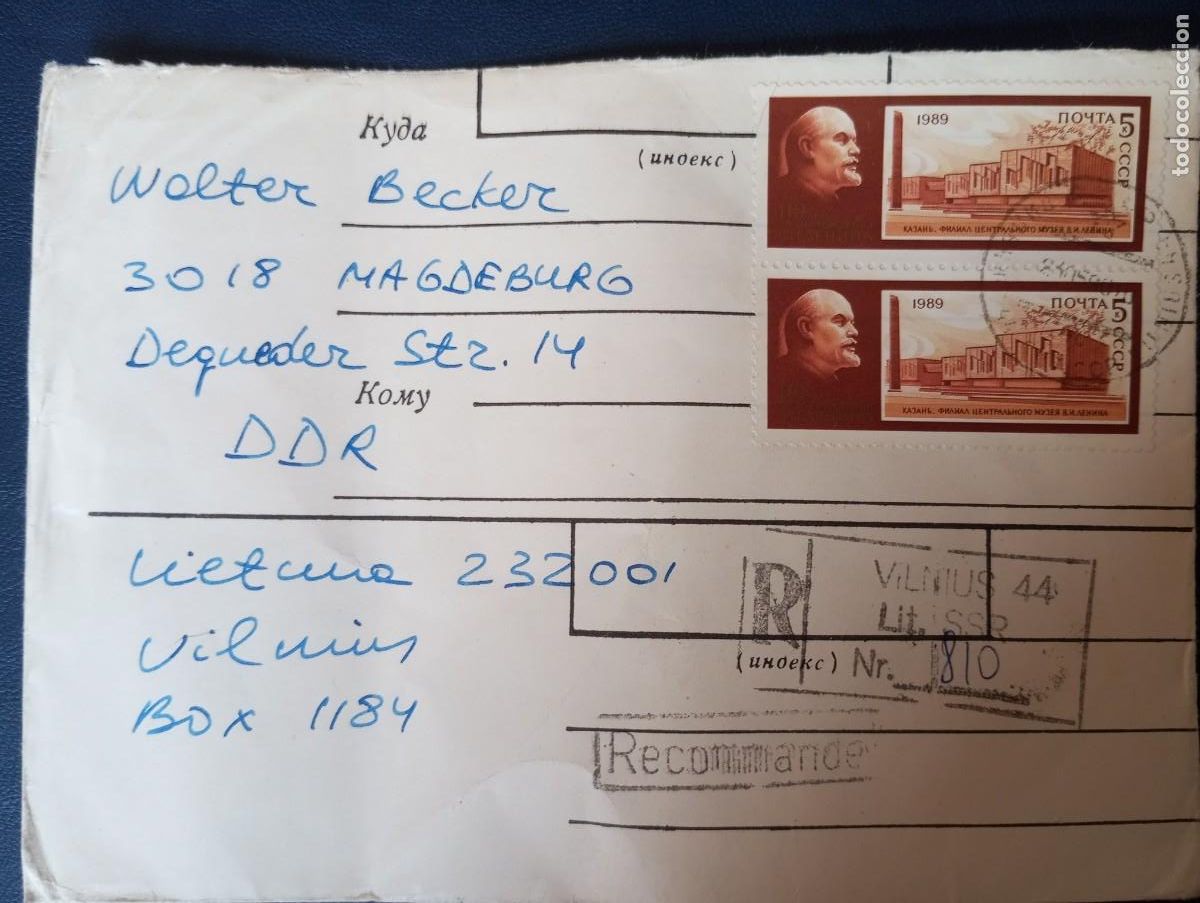 Куда
(индекс)
Walter Becker
3018 MAGDEBURG
Dequeder Str. 14
Кому
DDR
1989
ПОЧТА 5
СССР
КАЗАНЬ. ФИЛИАЛ ЦЕНТРАЛЬНОГО МУЗЕЯ В.И.ЛЕНИНА
1989
ПОЧТА 5
СССР
КАЗАНЬ. ФИЛИАЛ ЦЕНТРАЛЬНОГО МУЗЕЯ В.И.ЛЕНИНА
Lietuva 232001
Vilnius
BOX 1184
R
VILNIUS 44
Lit. SSR
Nr. 810
(индекс)
Recommande
todocoleccion